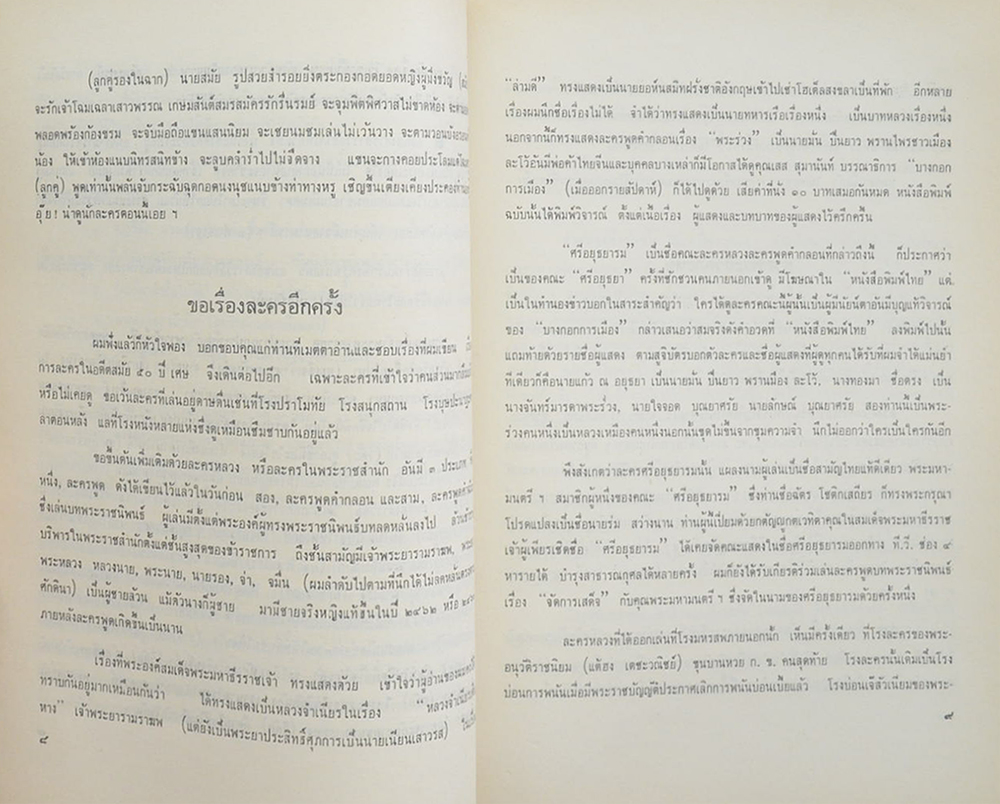 (ลูกคู่รองในฉาก) นายสมัย รูปสวยสำรอยยิ่งตระกองกอดยอดหญิงผู้มิ่งขวัญ
จะรักเจ้าโฉมเฉลาเสาวพรรณ เกษมสันต์สมรสมัครรักรื่นรมย์ จะจุมพิตพิศวาสไม่ขาดห้อง
พลอดพร้องก้องขรม จะจับมือถือแขนแสนนิยม จะเชยนมชมเล่นไม่เว้นวาง
น้อง ให้เข้าห้องแนบนิทรสนิทข้าง จะลูบคลำร่ำไปไม่จืดจาง แขนจะกางคอยประโลม
(ลูกคู่) พูดเท่านั้นพลันจับกระฉับฉุดกอดนงนุชแนบข้างท่าทางหรู เชิญขึ้นเตียงเคียงประคอง
อุ๊ย! น่าดูนักละครตอนนี้เอย ฯ
ขอเรื่องละครอีกครั้ง
ผมพึ่งแล้วก็หัวใจพอง บอกขอบคุณแก่ท่านที่เมตตาอ่านและชอบเรื่องที่ผมเขียน
การละครในอดีตสมัย ๕๐ ปี เศษ จึงเดินต่อไปอีก เฉพาะละครที่เข้าใจว่าคนส่วนมาก
หรือไม่เคยดู ขอเว้นละครที่เล่นอยู่ดาษดื่นเช่นที่โรงปราโมทัย โรงสนุกสถาน
ลาตอนหลัง แลที่โรงหนังหลายแห่งซึ่งดูเหมือนซึมซาบกันอยู่แล้ว
ขอขึ้นต้นเพิ่มเติมด้วยละครหลวง หรือละครในพระราชสำนัก อันมี ๓ ประเภท
หนึ่ง, ละครพูด ดังได้เขียนไว้แล้วในวันก่อน สอง, ละครพูดคำกลอน และสาม,
ซึ่งเล่นบทพระราชนิพนธ์ ผู้เล่นมีตั้งแต่พระองค์ผู้ทรงพระราชนิพนธ์บทลดหลั่นลงไป
บริพารในพระราชสำนักตั้งแต่ชั้นสูงสุดของข้าราชการ ถึงชั้นสามัญมีเจ้าพระยารามราฆพ,
พระหลวง หลวงนาย, พระนาย, นายรอง, จ่า, จมื่น (ผมลำดับไปตามที่นึกได้ไม่ลดหลั่น
ศักดินา) เป็นผู้ชายล้วน แม้ตัวนางก็ผู้ชาย มามีชายจริงหญิงแท้ขึ้นในปี ๒๔๖๒ หรือ
ภายหลังละครพูดเกิดขึ้นเป็นนาน
เรื่องที่พระองค์สมเด็จพระมหาธีรราชเจ้า ทรงแสดงด้วย เข้าใจว่าผู้อ่านของผม
ทราบกันอยู่มากเหมือนกันว่า ได้ทรงแสดงเป็นหลวงจำเนียรในเรื่อง
หาง" เจ้าพระยารามราฆพ (แต่ยังเป็นพระยาประสิทธิ์ศุภการเป็นนายเนียนเสาวรส)
๘
"ล่ามดี" ทรงแสดงเป็นนายยอห์นสมิทฝรั่งชาติอังกฤษเข้าไปเช่าโฮเต็ลสงขลาเป็นที่พัก อีกหลาย
เรื่องผมนึกชื่อเรื่องไม่ได้ จำได้ว่าทรงแสดงเป็นนายทหารเรือเรื่องหนึ่ง เป็นบาทหลวงเรื่องหนึ่ง
นอกจากนี้ก็ทรงแสดงละครพูดคำกลอนเรื่อง "พระร่วง" เป็นนายมั่น ปืนยาว พรานไพรชาวเมือง
ละโว้อันมีพ่อค้าไทยจีนและบุคคลบางเหล่าก็มีโอกาสได้ดูคุณเสส สุมานันท์ บรรณาธิการ "บางกอก
การเมือง" (เมื่อออกรายสัปดาห์) ก็ได้ไปดูด้วย เสียค่าที่นั่ง ๑๐ บาทเสมอกันหมด หนังสือพิมพ์
ฉบับนั้นได้พิมพ์วิจารณ์ ตั้งแต่เนื้อเรื่อง ผู้แสดงและบทบาทของผู้แสดงไว้ครึกครื้น
"ศรีอยุธยารม" เป็นชื่อคณะละครหลวงละครพูดคำกลอนที่กล่าวถึงนี้ ก็ประกาศว่า
เป็นของคณะ "ศรีอยุธยา" ครั้งที่ชักชวนคนภายนอกเข้าดู มีโฆษณาใน "หนังสือพิมพ์ไทย" แต่
เป็นในทำนองข่าวบอกในสาระสำคัญว่า ใครได้ดูละครคณะนี้ผู้นั้นเป็นผู้มีนัยน์ตาอันมีบุญแท้วิจารณ์
ของ "บางกอกการเมือง" กล่าวเสนอว่าสมจริงดังคำอวดที่ "หนังสือพิมพ์ไทย" ลงพิมพ์ไปนั้น
แถมท้ายด้วยรายชื่อผู้แสดง ตามสูจิบัตรบอกตัวละครและชื่อผู้แสดงที่ผู้ดูทุกคนได้รับที่ผมจำได้แม่นยำ
ทีเดียวก็คือนายแก้ว ณ อยุธยา เป็นนายมั่น ปืนยาว พรานเมือง ละโว้, นางทองมา ชื่อตรง เป็น
นางจันทร์มารดาพระร่วง, นายใจจอด บุณยาศรัย นายลักษณ์ บุณยาศรัย สองท่านนี้เป็นพระ-
ร่วงคนหนึ่งเป็นหลวงเหมืองคนหนึ่งนอกนั้นขุดไม่ขึ้นจากขุมความจำ นึกไม่ออกว่าใครเป็นใครกันอีก
พึงสังเกตว่าละครศรีอยุธยารมนั้น แผลงนามผู้เล่นเป็นชื่อสามัญไทยแท้ทีเดียว พระมหา-
มนตรี ฯ สมาชิกผู้หนึ่งของคณะ "ศรีอยุธยารม" ซึ่งท่านชื่อฉัตร โชติกเสถียร ก็ทรงพระกรุณา
โปรดแปลงเป็นชื่อนายร่ม สว่างนาน ท่านผู้นี้เปี่ยมด้วยกตัญญูกตเวทิตาคุณในสมเด็จพระมหาธีรราช
เจ้าผู้เพียรเชิดชื่อ "ศรีอยุธยารม" ได้เคยจัดคณะแสดงในชื่อศรีอยุธยารมออกทาง ที.วี. ช่อง ๔
หารายได้ บำรุงสาธารณกุศลได้หลายครั้ง ผมก็ยังได้รับเกียรติร่วมเล่นละครพูดบทพระราชนิพนธ์
เรื่อง "จัดการเสด็จ" กับคุณพระมหามนตรี ฯ ซึ่งจัดในนามของศรีอยุธยารมด้วยครั้งหนึ่ง
ละครหลวงที่ได้ออกเล่นที่โรงมหรสพภายนอกนั้ก เห็นมีครั้งเดียว ที่โรงละครของพระ-
อนุวัติราชนิยม (แต้ฮง เตชะวณิชย์) ขุนบานหวย ก. ข. คนสุดท้าย โรงละครนั้นเดิมเป็นโรง
บ่อนการพนันเมื่อมีพระราชบัญญัติประกาศเลิกการพนันบ่อนเบี้ยแล้ว โรงบ่อนเจ้สัวเนียมของพระ-
๙